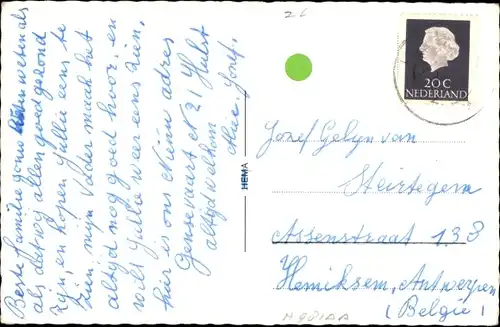 Beste familie gouw weten als
als dat nog allen goed gezond
zijn, en hopen jullie eens te
zien, mijn Vader maak het
altyd nog goed hoor, en
wilt jullie weer eens zien.
hier is ons nieuw adres
Gensevaart N 21 Hulst
altyd welkom
Jozef.
HEMA
26
20 C
NEDERLAND
Jozef Gelyn van
Steirtegem
Assenstraat 133
Hemiksem, Antwerpen
(België)